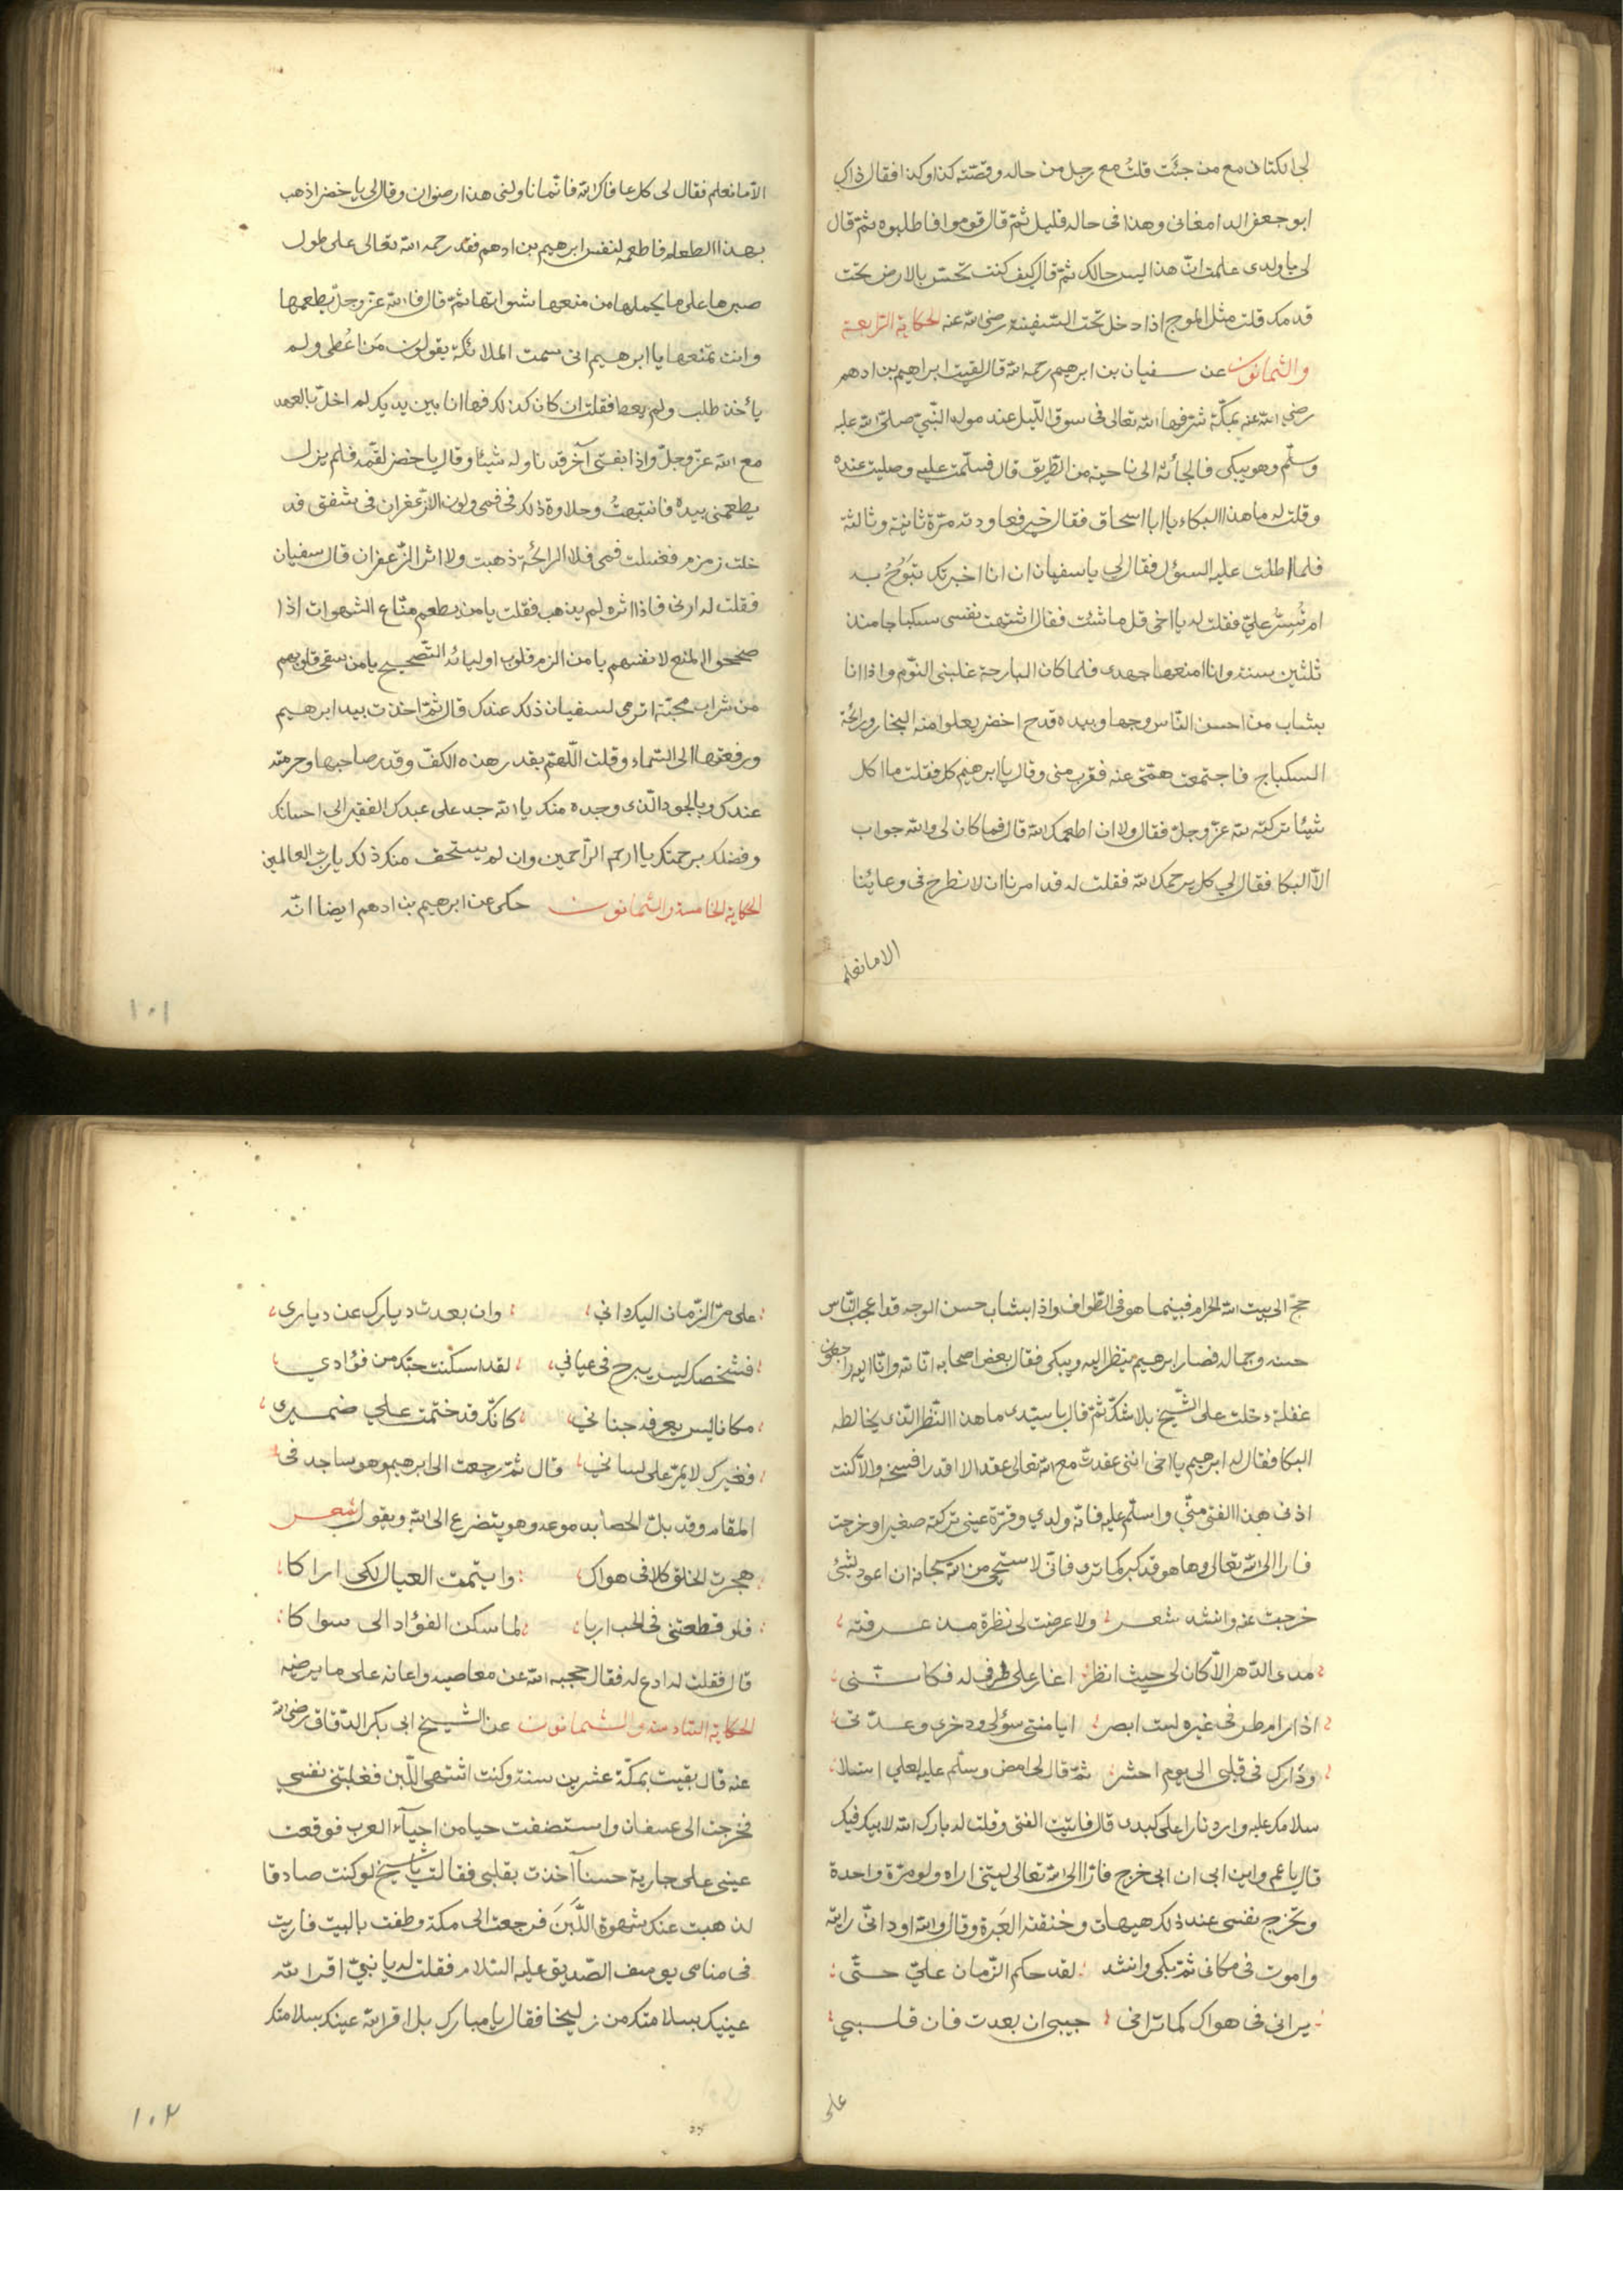 لى الكتانى مع من جئت قلت مع رجل من حاله وقصته كذا وكذا فقال ذاك
ابو جعفر الدامغانى وهذا فى حاله قليل ثم قال قوموا فاطلبوه ثم قال
لى يا ولدى علمت انّ هذا ليس حالك ثم قال كيف كنت تحسّ بالارض تحت
قدمك قلت مثل الموج اذا دخل تحت السفينة رضى الله عنه الحكاية الرابعة
والثمانون عن سفيان بن ابرهيم رحمه الله قال لقيت ابراهيم بن ادهم
رضى الله عنه بمكّة شرّفها الله تعالى فى سوق اللّيل عند مولد النّبىّ صلّى الله عليه
وسلّم وهو يبكى فالجأته الى ناحية من الطريق قال فسلّمت عليه وصليت عنده
وقلت له ما هذا البكاء يا ابا اسحاق فقال خير فعاودته مرّة ثانية وثالثة
فلما اطلت عليه السؤل فقال لى يا سفيان ان انا اخبرتك تبوح به
ام تُسِرّ علىّ فقلت له يا اخى قل ما شئت فقال اشتهت نفسى سكباجا منذ
ثلثين سنة وانا امنعها جهدى فلما كان البارحة غلبنى النّوم واذا انا
بشاب من احسن النّاس وجها وبيده قدح اخضر يعلوا منه البخار ورائحة
السكباج فاجتمعت همّتى عنه فقرب منى وقال يا ابرهيم كل فقلت ما اكل
شيئا تركته لله عزّ وجلّ فقال ولا ان اطعمك الله قال فما كان لى والله جواب
الّا البكا فقال لى كل يرحمك الله فقلت له قد امرنا ان لا نطرح فى وعائنا
الا ما نعلم
الّا ما نعلم فقال لى كل عافاك الله فانّما ناولنى هذا رضوان وقال لى يا خضر اذهب
بهذا الطعام فاطعمه لنفس ابرهيم بن ادهم فقد رحمه الله تعالى على طول
صبرها على ما يحملها من منعها شهواتها ثمّ قال فالله عزّ وجلّ يطعمها
وانت تمنعها يا ابرهيم انى سمعت الملائكة يقولون من اُعطى ولم
يأخذ طلب ولم يعط فقلت ان كان كذلك فها انا بين يديك لم اخلّ بالعهد
مع الله عزّ وجلّ واذا بفتى آخر قد ناوله شيئا وقال يا خضر لقّمه فلم يزل
يطعمنى بيده فانتبهتُ وحلاوة ذلك فى فمى ولون الزّعفران فى شفتى فد
خلت زمزم فغسلت فمى فلا الرائحة ذهبت ولا اثر الزّعفران قال سفيان
فقلت له ارنى فاذا اثره لم يذهب فقلت يا من يطعم منّاع الشهوات اذا
صححوا المنع لانفسهم يا من الزم قلوب اوليائه التصحيح يا من سقى قلوبهم
من شراب محبّته اترى لسفيان ذلك عندك قال ثمّ اخذت بيد ابرهيم
ورفعتها الى السّماء وقلت اللّهمّ بقدر هذه الكفّ وقدر صاحبها وحرمته
عندك وبالجود الّذى وجده منك يا الله جد على عبدك الفقير الى احسانك
وفضلك برحمتك يا ارحم الرّاحمين وان لم يستحق منك ذلك يا ربّ العالمين
الحكاية الخامسة والثمانون حكى عن ابرهيم بن ادهم ايضا انّه
١٠١
حجّ الى بيت الله الحرام فبينما هو فى الطّواف واذا بشاب حسن الوجه قد اعجب النّاس
حسنه وجماله فصار ابرهيم ينظر اليه ويبكى فقال بعض اصحابه انّا لله وانّا اليه راجعون
غفلة دخلت على الشّيخ بلا شكّ ثمّ قال يا سيّدى ما هذا النّظر الّذى يخالطه
البكا فقال له ابرهيم يا اخى انّنى عقدت مع الله تعالى عقدا لا اقدر افسخه والّا كنت
اذنى هذا الفتى منّى واسلّم عليه فانّه ولدى وقرّة عينى تركته صغيرا وخرجت
فارا الى الله تعالى وها هو قد كبر كما ترى فانّى لا ستحى من الله سبحانه ان اعود بشئ
خرجت عنه وانشد شعر ولا عرضت لى نظرة مذ عرفته
مدى الدّهر الّا كان لى حيث انظر اغار على طرفى له فكاننى
اذا رام طرفى غيره لست ابصر ايا منتهى سؤلى وذخرى وعدّتى
وذارك فى قلبى الى يوم احشر ثمّ قال لى امض وسلّم عليه لعلى اتسلا
سلامك عليه وابرد نارا على كبدى قال فاتيت الفتى وقلت له بارك الله لابيك فيك
قال يا عم واين ابى ان ابى خرج فارّا الى الله تعالى ليتنى اراه ولو مرّة واحدة
وتخرج نفسى عند ذلك هيهات وخنقته العَبرة وقال والله اود انّى رايته
واموت فى مكانى ثمّ بكى وانشد لقد حكم الزّمان علىّ حتّى
يرانى فى هواك كما ترانى حبيبى ان بعدت فان قلبى
على
على مرّ الزّمان اليك دانى وان بعدت ديارك عن ديارى
فشخصك ليس يبرح فى عيانى لقد اسكنت حبّك من فؤادى
مكانا ليس يعرفه جنانى كانّك قد ختمت على ضميرى
فغيرك لا يمرّ على لسانى قال ثمّ رجعت الى ابرهيم وهو ساجد فى
المقام وقد بلّ الحصا بدموعه وهو يتضرع الى الله ويقول شعر
هجرت الخلق كلّا فى هواك وايتمت العيال لكى اراكا
فلو قطعتنى فى الحب اربا لما سكن الفؤاد الى سواكا
قال فقلت له ادع له فقال حجبه الله عن معاصيه واعانه على ما يرضيه
الحكاية السّادسة والثمانون عن الشيخ ابى بكر الدّقاق رضى الله
عنه قال بقيت بمكّة عشرين سنة وكنت اشتهى اللّبن فغلبتنى نفسى
فخرجت الى عسفان واستضفت حيا من احياء العرب فوقعت
عينى على جارية حسنا آخذت بقلبى فقالت يا شيخ لو كنت صادقا
لذهبت عنك شهوة اللَّبَن فرجعت الى مكة وطفت بالبيت فاريت
فى منامى يوسف الصّديق عليه السّلام فقلت له يا نبىّ اقر الله
عينيك بسلامتك من زليخا فقال يا مبارك بل اقر الله عينك بسلامتك
١٠٢